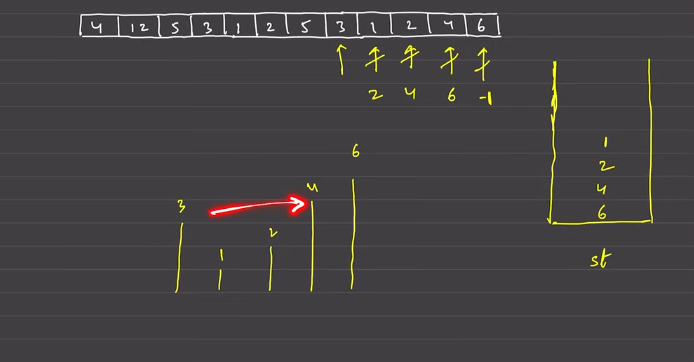 4 12 5 3 1 2 5 3 1 2 4 6
2 4 6 -1
6
4
3
2
1
1
2
4
6
st